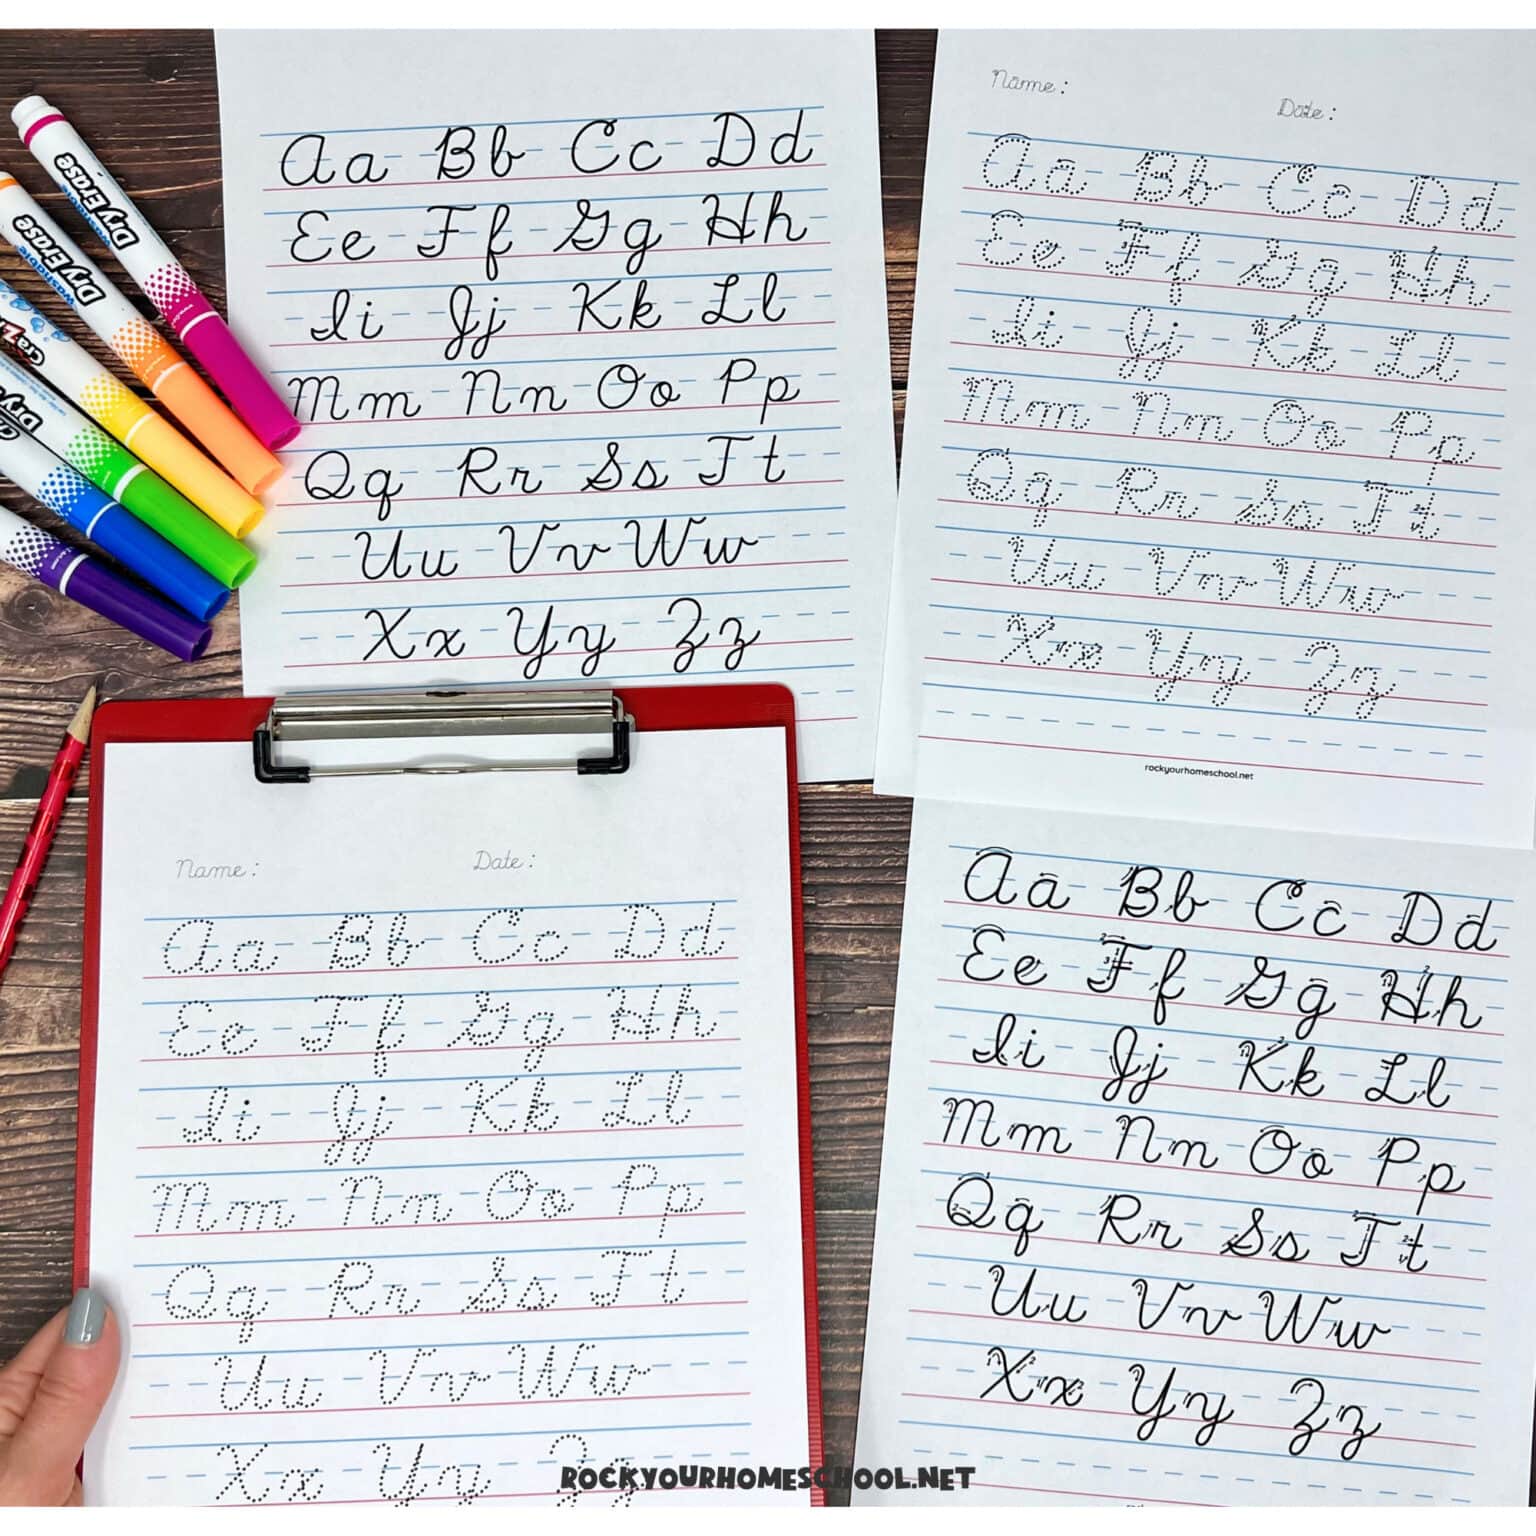 Aa Bb Cc Dd
Ee Ff Gg Hh
Ii Jj Kk Ll
Mm Nn Oo Pp
Qq Rr Ss Tt
Uu Vv Ww
Xx Yy Zz
Name:
Date:
Aa Bb Cc Dd
Ee Ff Gg Hh
Ii Jj Kk Ll
Mm Nn Oo Pp
Qq Rr Ss Tt
Uu Vv Ww
Xx Yy Zz
rockyourhomeschool.net
Washable
Dry Erase
Washable
Dry Erase
Name: Date:
Aa Bb Cc Dd
Ee Ff Gg Hh
Ii Jj Kk Ll
Mm Nn Oo Pp
Qq Rr Ss Tt
Uu Vv Ww
Xx Yy Zz
Aa Bb Cc Dd
Ee Ff Gg Hh
Ii Jj Kk Ll
Mm Nn Oo Pp
Qq Rr Ss Tt
Uu Vv Ww
Xx Yy Zz
ROCKYOURHOMESCHOOL.NET